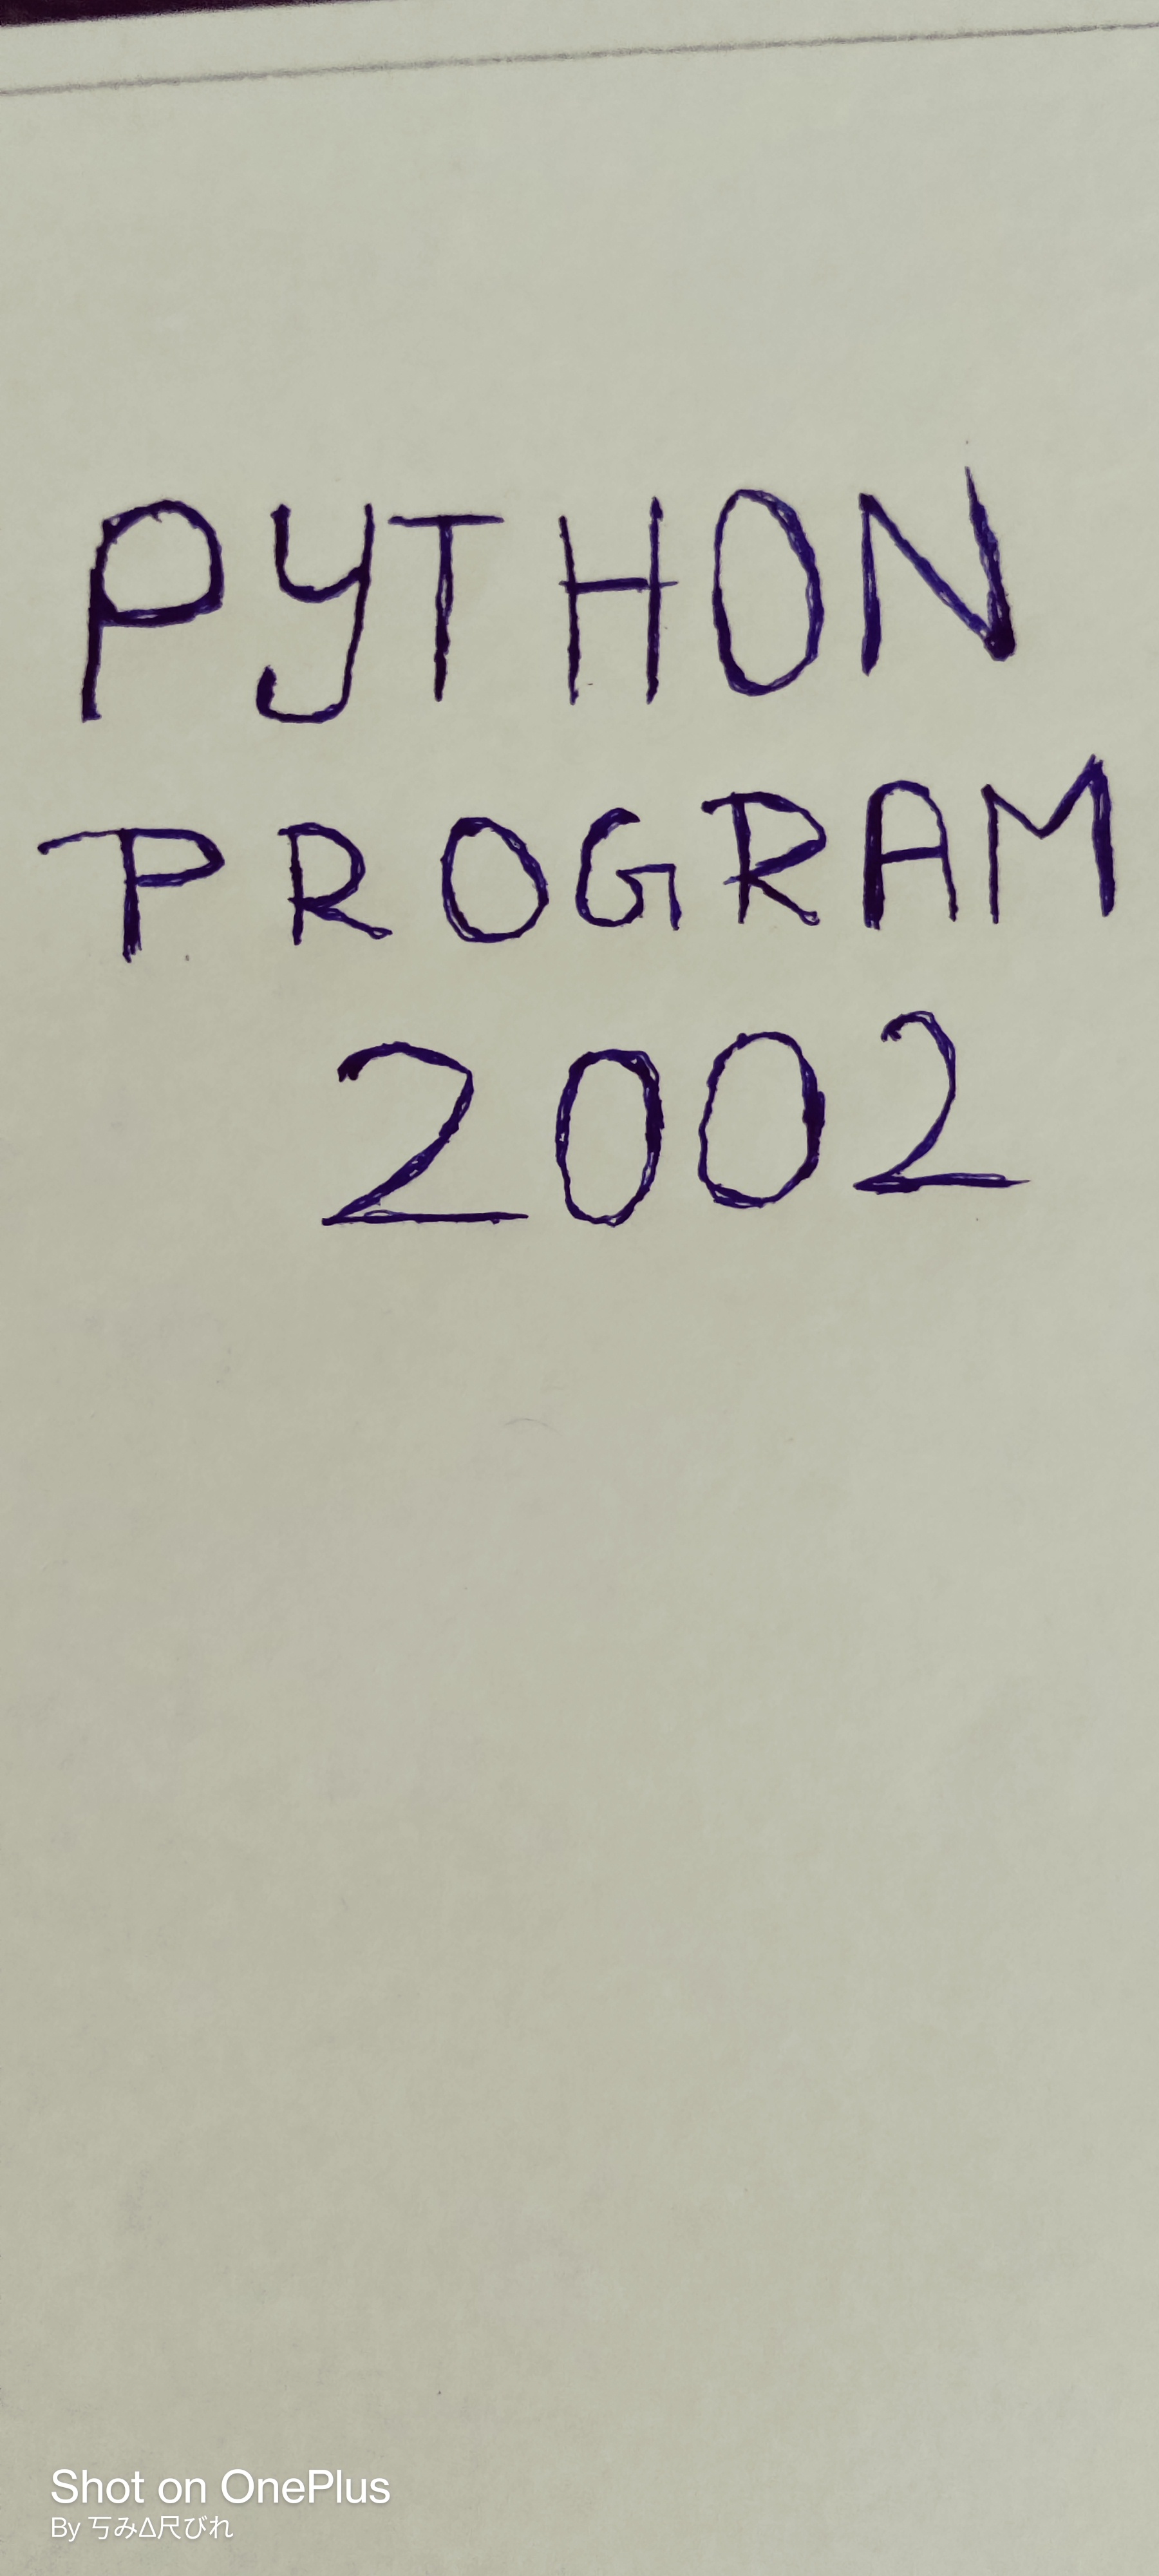 PYTHON
PROGRAM
2002
Shot on OnePlus
By 丂みΔ尺びれ